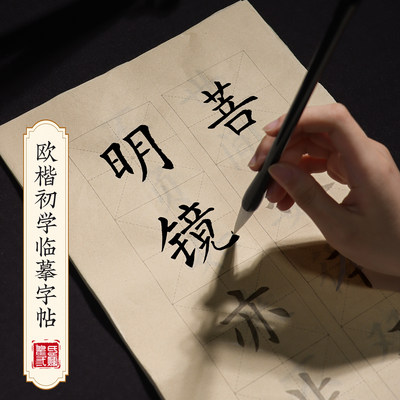 菩
明镜亦
欧楷初学临摹字帖